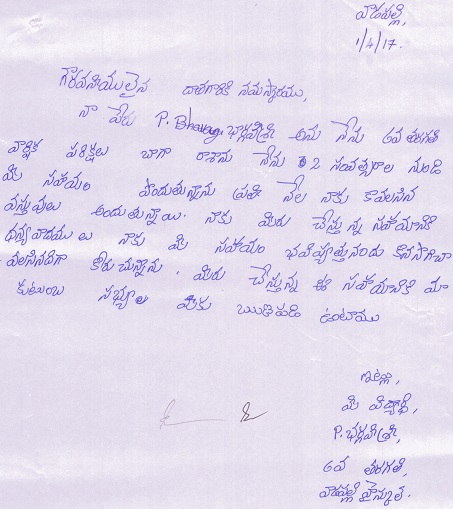 వాడపల్లి,
1/4/17.
గౌరవనీయులైన దాతగారికి నమస్కారము,
నా పేరు P. భార్గవిశ్రీ అను నేను 6వ తరగతి
వార్షిక పరిక్షలు బాగా రాశాను నేను 2 సంవత్సరాల నుండి
మీ సహాయం పొందుతున్నాను ప్రతి నెల నాకు కావలసిన
వస్తువులు అందుతున్నాయి. నాకు మీరు చేస్తున్న సహాయానికి
ధన్యవాదములు నాకు మీ సహాయం భవిష్యత్తునందు కొనసాగించా
వలసినదిగా కోరుచున్నాను. మీరు చేస్తున్న ఈ సహాయానికి మా
కుటుంబ సభ్యుల మీకు ఋణపడి ఉంటాము
ఇట్లు,
మీ విద్యార్థి,
P. భార్గవిశ్రీ,
6వ తరగతి,
వాడపల్లి హైస్కూల్.